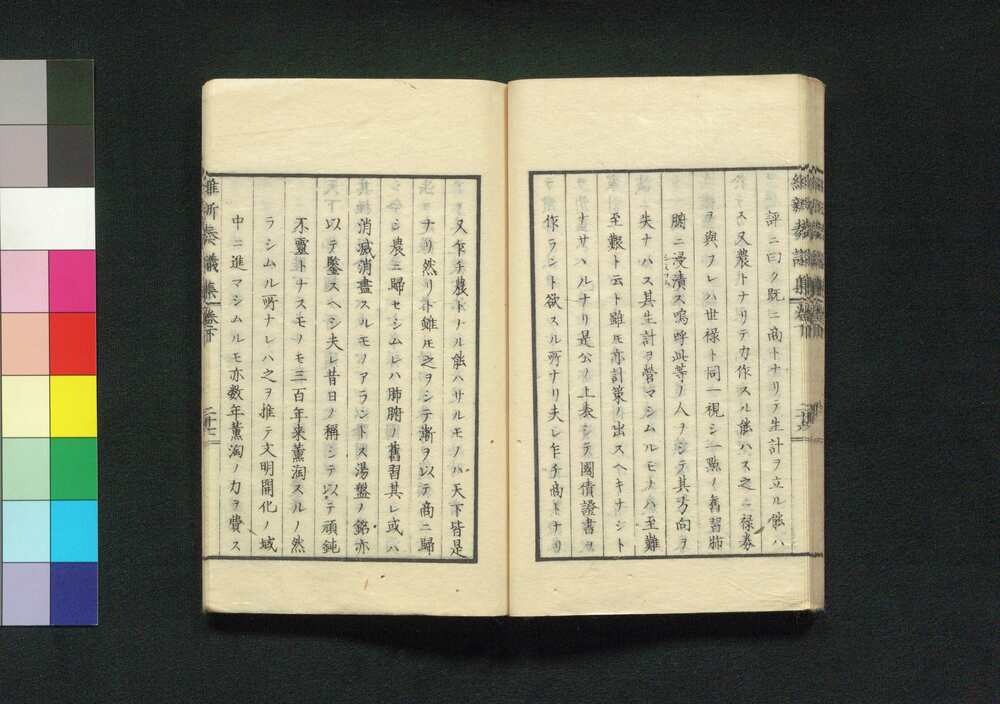 評ニ曰ク既ニ商トナリテ生計ヲ立ル能ハ
ス又農トナリテ力作スル能ハス之ニ禄券
ヲ與フレハ世禄ト同一視シ一點ノ舊習肺
腑ニ浸漬ス嗚呼此等ノ人ヲシテ其方向ヲ
失ナハス其生計ヲ營マシムルモノハ至難
至艱ト云ト雖モ亦計策ノ出スヘキナシト
ナサヽルナリ是公ノ上表シテ國債證書ヲ
作ラント欲スル所ナリ夫レ乍チ商トナリ
又乍チ農トナル能ハサルモノハ天下皆是
ナリ然リト雖モ之ヲシテ漸ヲ以テ商ニ歸
シ農ニ歸セシムレハ肺腑ノ舊習其レ或ハ
消滅消盡スルモノアラントス湯盤ノ銘亦
以テ鑒スヘシ夫レ昔日ノ稱シテ以テ頑鈍
不靈トナスモノモ三百年来薫淘スルノ然
ラシムル所ナレハ之ヲ推テ文明開化ノ域
中ニ進マシムルモ亦数年薫淘ノ力ヲ費ス
維新奏議集 卷下 二十七